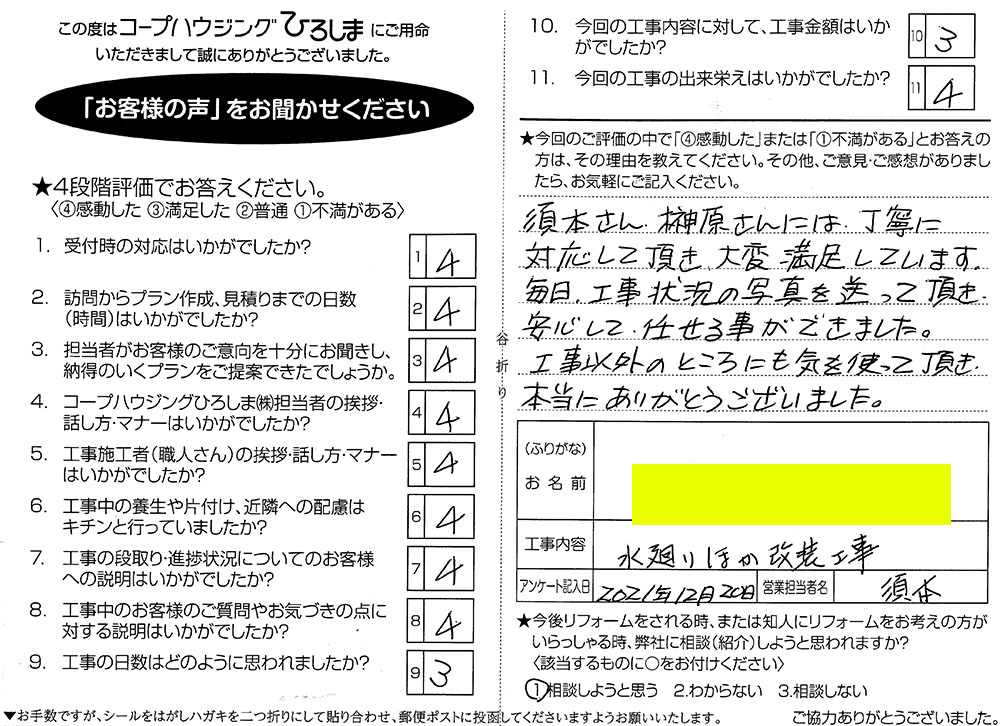 この度はコープハウジングひろしまにご用命
いただきまして誠にありがとうございました。
「お客様の声」をお聞かせください
★4段階評価でお答えください。
〈④感動した ③満足した ②普通 ①不満がある〉
1. 受付時の対応はいかがでしたか?
1 4
2. 訪問からプラン作成、見積りまでの日数
（時間）はいかがでしたか?
2 4
3. 担当者がお客様のご意向を十分にお聞きし、
納得のいくプランをご提案できたでしょうか。
3 4
4. コープハウジングひろしま㈱担当者の挨拶・
話し方・マナーはいかがでしたか?
4 4
5. 工事施工者（職人さん）の挨拶・話し方・マナー
はいかがでしたか?
5 4
6. 工事中の養生や片付け、近隣への配慮は
キチンと行っていましたか?
6 4
7. 工事の段取り・進捗状況についてのお客様
への説明はいかがでしたか?
7 4
8. 工事中のお客様のご質問やお気づきの点に
対する説明はいかがでしたか?
8 4
9. 工事の日数はどのように思われましたか?
9 3
▼お手数ですが、シールをはがしハガキを二つ折りにして貼り合わせ、郵便ポストに投函してくださいますようお願いいたします。
谷折り
10. 今回の工事内容に対して、工事金額はいか
がでしたか?
10 3
11. 今回の工事の出来栄えはいかがでしたか?
11 4
★今回のご評価の中で「④感動した」または「①不満がある」とお答えの
方は、その理由を教えてください。その他、ご意見・ご感想がありまし
たら、お気軽にご記入ください。
須本さん、榊原さんには、丁寧に
対応して頂き、大変満足しています。
毎日、工事状況の写真を送って頂き、
安心して、任せる事ができました。
工事以外のところにも気を使って頂き、
本当にありがとうございました。
（ふりがな）
お名前
工事内容 水廻りほか改装工事
アンケート記入日 2021年12月20日 営業担当者名 須本
★今後リフォームをされる時、または知人にリフォームをお考えの方が
いらっしゃる時、弊社に相談（紹介）しようと思われますか?
〈該当するものに○をお付けください〉
1.相談しようと思う 2.わからない 3.相談しない
ご協力ありがとうございました。